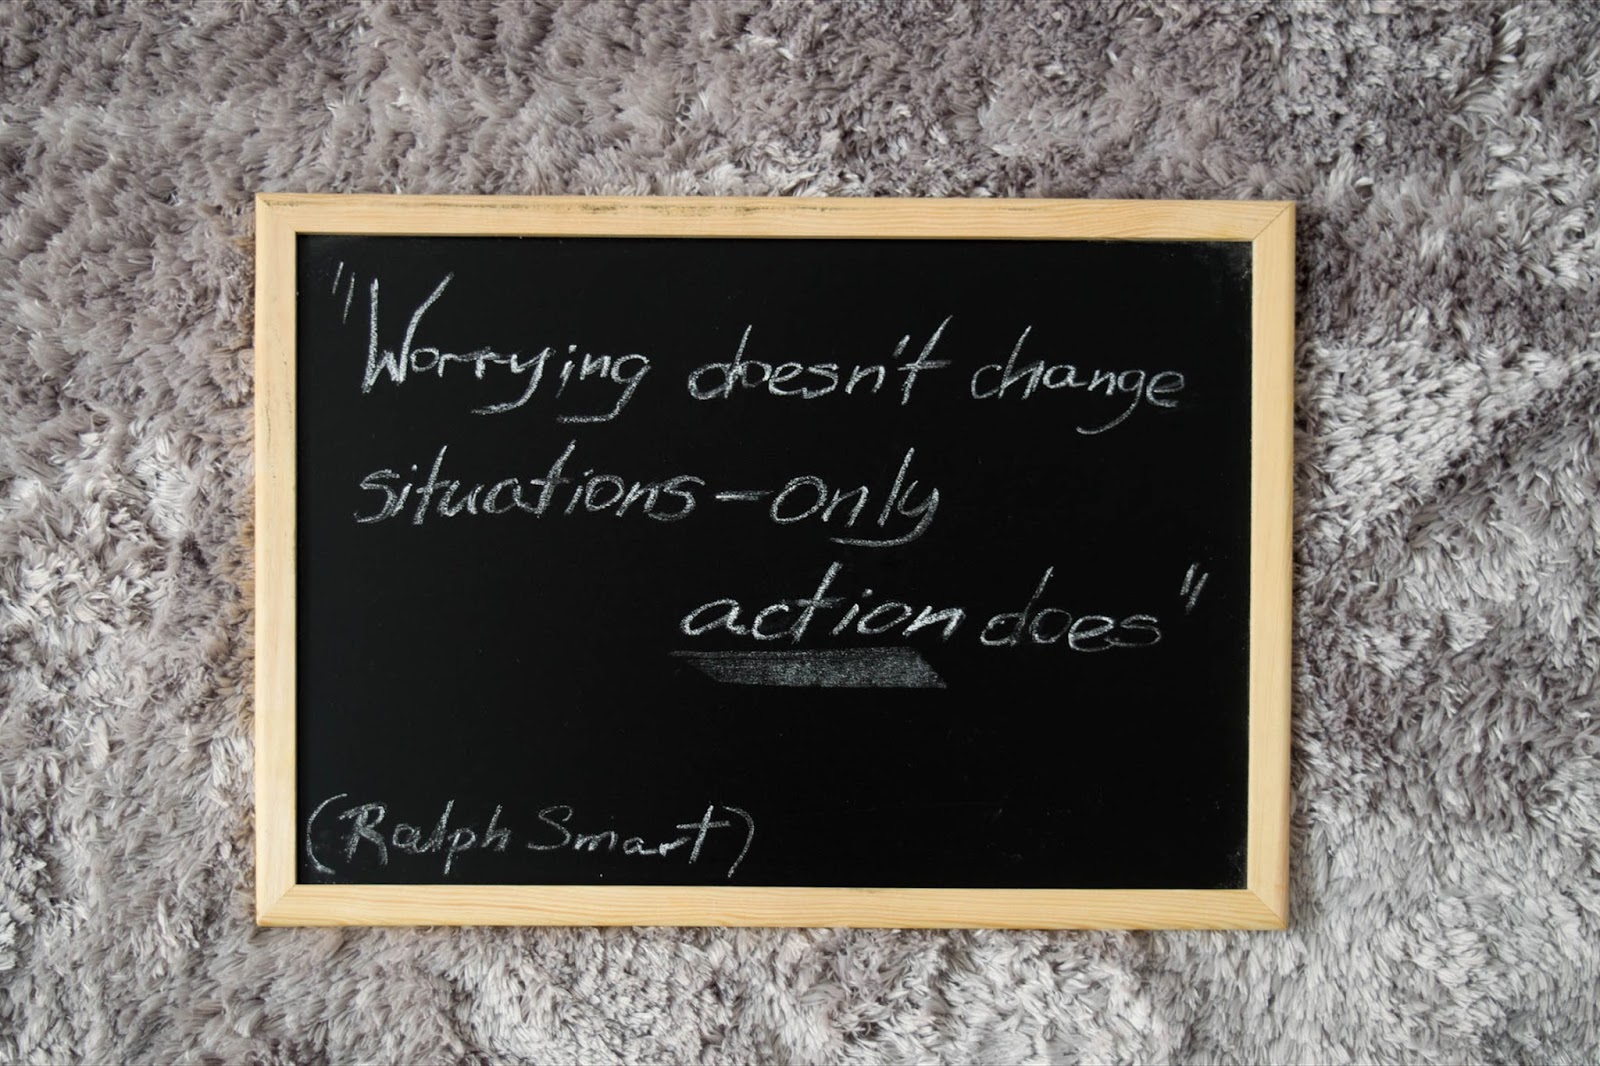 "Worrying doesn't change
situations - only
action does"
(Ralph Smart)